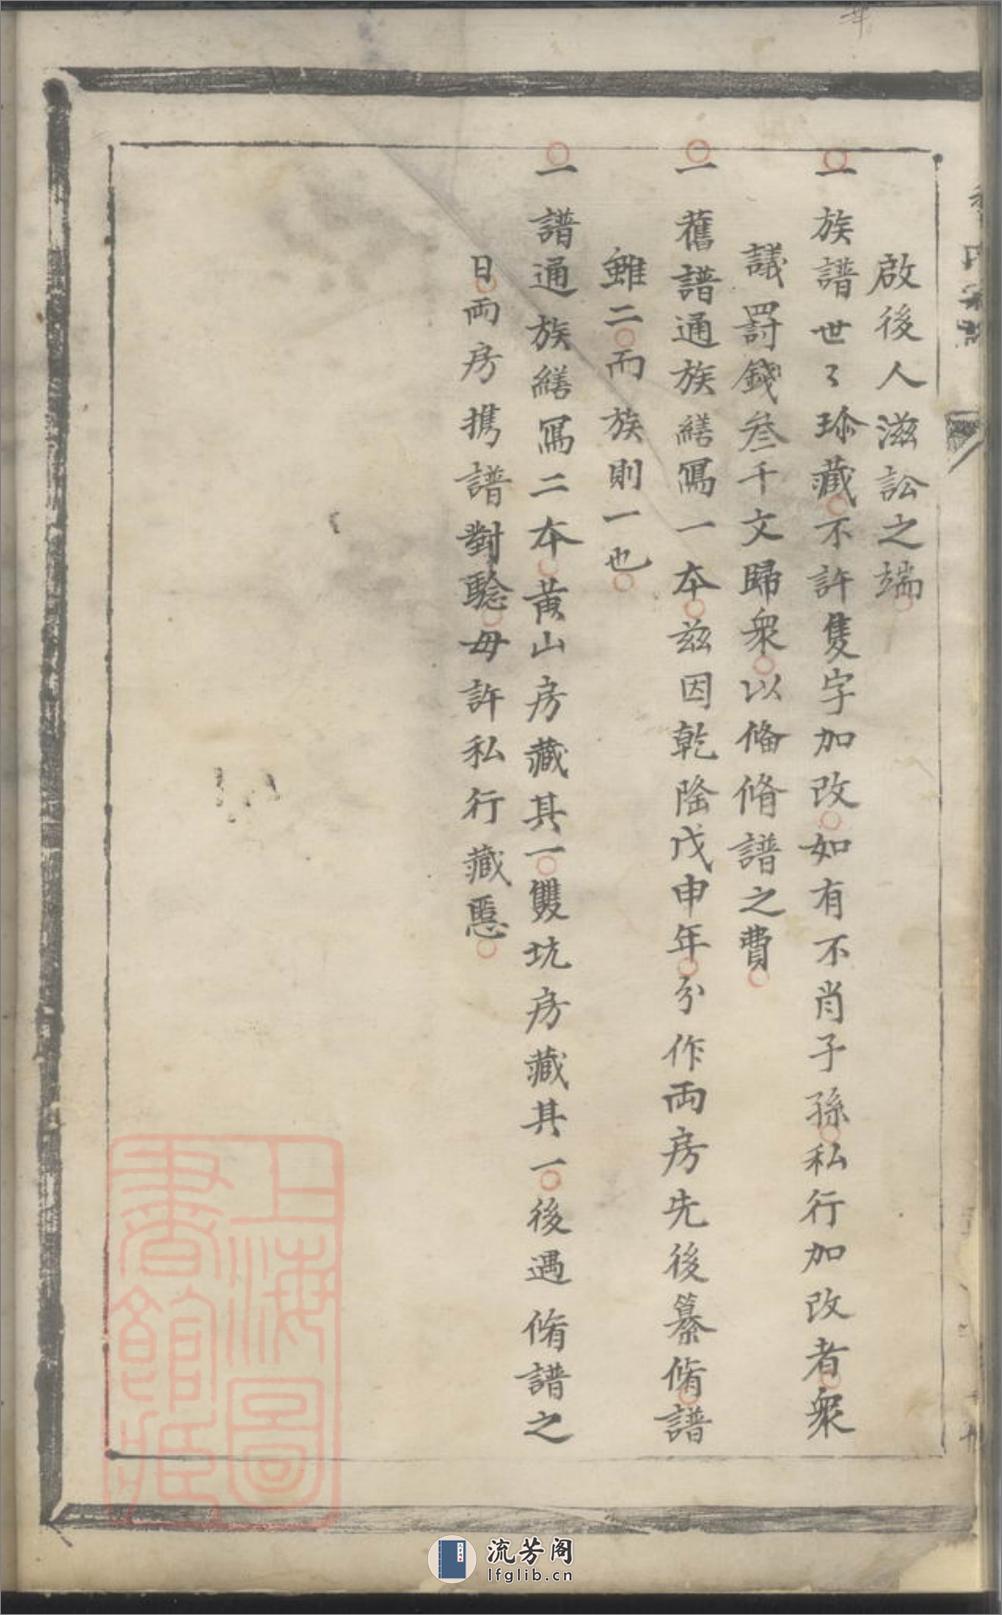 啟後人滋訟之端
一族譜世々珎藏不許隻字加改如有不肖子孫私行加改者衆
議罸錢叁千文歸衆以俻脩譜之費
一舊譜通族繕寫一本茲因乾隆戊申年分作兩房先後纂脩譜
雖二而族則一也
一譜通族繕寫二本黃山房藏其一雙坑房藏其一後遇脩譜之
日兩房携譜對驗毋許私行藏慝
上海圖
書館藏
流芳阁
lfglib.cn